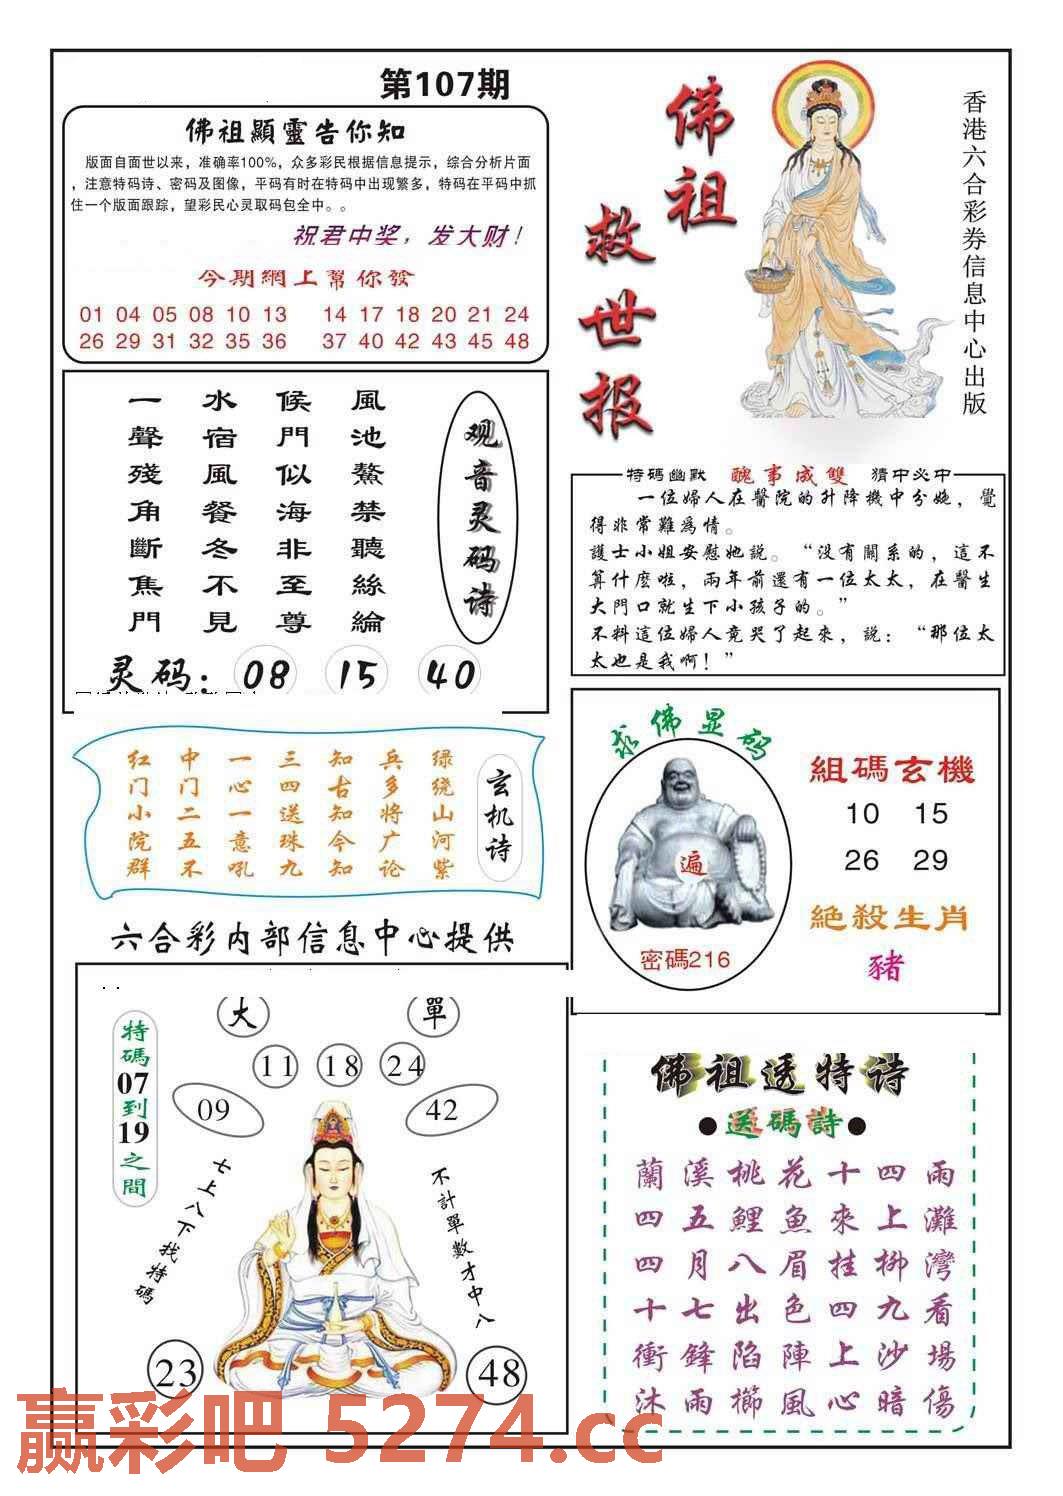 第107期
佛祖顯靈告你知
版面自面世以来，准确率100%，众多彩民根据信息提示，综合分析片面
，注意特码诗、密码及图像，平码有时在特码中出现繁多，特码在平码中抓
住一个版面跟踪，望彩民心灵取码包全中。。
祝君中奖，发大财！
今期網上幫你發
01 04 05 08 10 13 14 17 18 20 21 24
26 29 31 32 35 36 37 40 42 43 45 48
佛祖
救世报
香港六合彩券信息中心出版
观音灵码诗
風池鰲禁聽絲綸
候門似海非至尊
水宿風餐冬不見
一聲殘角斷焦門
灵码：08 15 40
特碼幽默 醜事成雙 猜中必中
一位婦人在醫院的升降機中分娩，覺
得非常難爲情。
護士小姐安慰她説。“没有關系的，這不
算什麽啦，兩年前還有一位太太，在醫生
大門口就生下小孩子的。”
不料這位婦人竟哭了起來，説：“那位太
太也是我啊！”
玄机诗
绿绕山河紫
兵多将广论
知古知今知
三四送珠九
一心一意吼
中门二五不
红门小院群
求佛显码
遍
密碼216
組碼玄機
10 15
26 29
絕殺生肖
豬
六合彩内部信息中心提供
大 單
11 18 24
09 42
特碼07到19之間
七上八下找特碼
不計單數才中八
23 48
佛祖透特诗
●送碼詩●
蘭溪桃花十四雨
四五鯉魚來上灘
四月八眉挂柳灣
十七出色四九看
衝鋒陷陣上沙場
沐雨櫛風心暗傷
赢彩吧 5274.cc